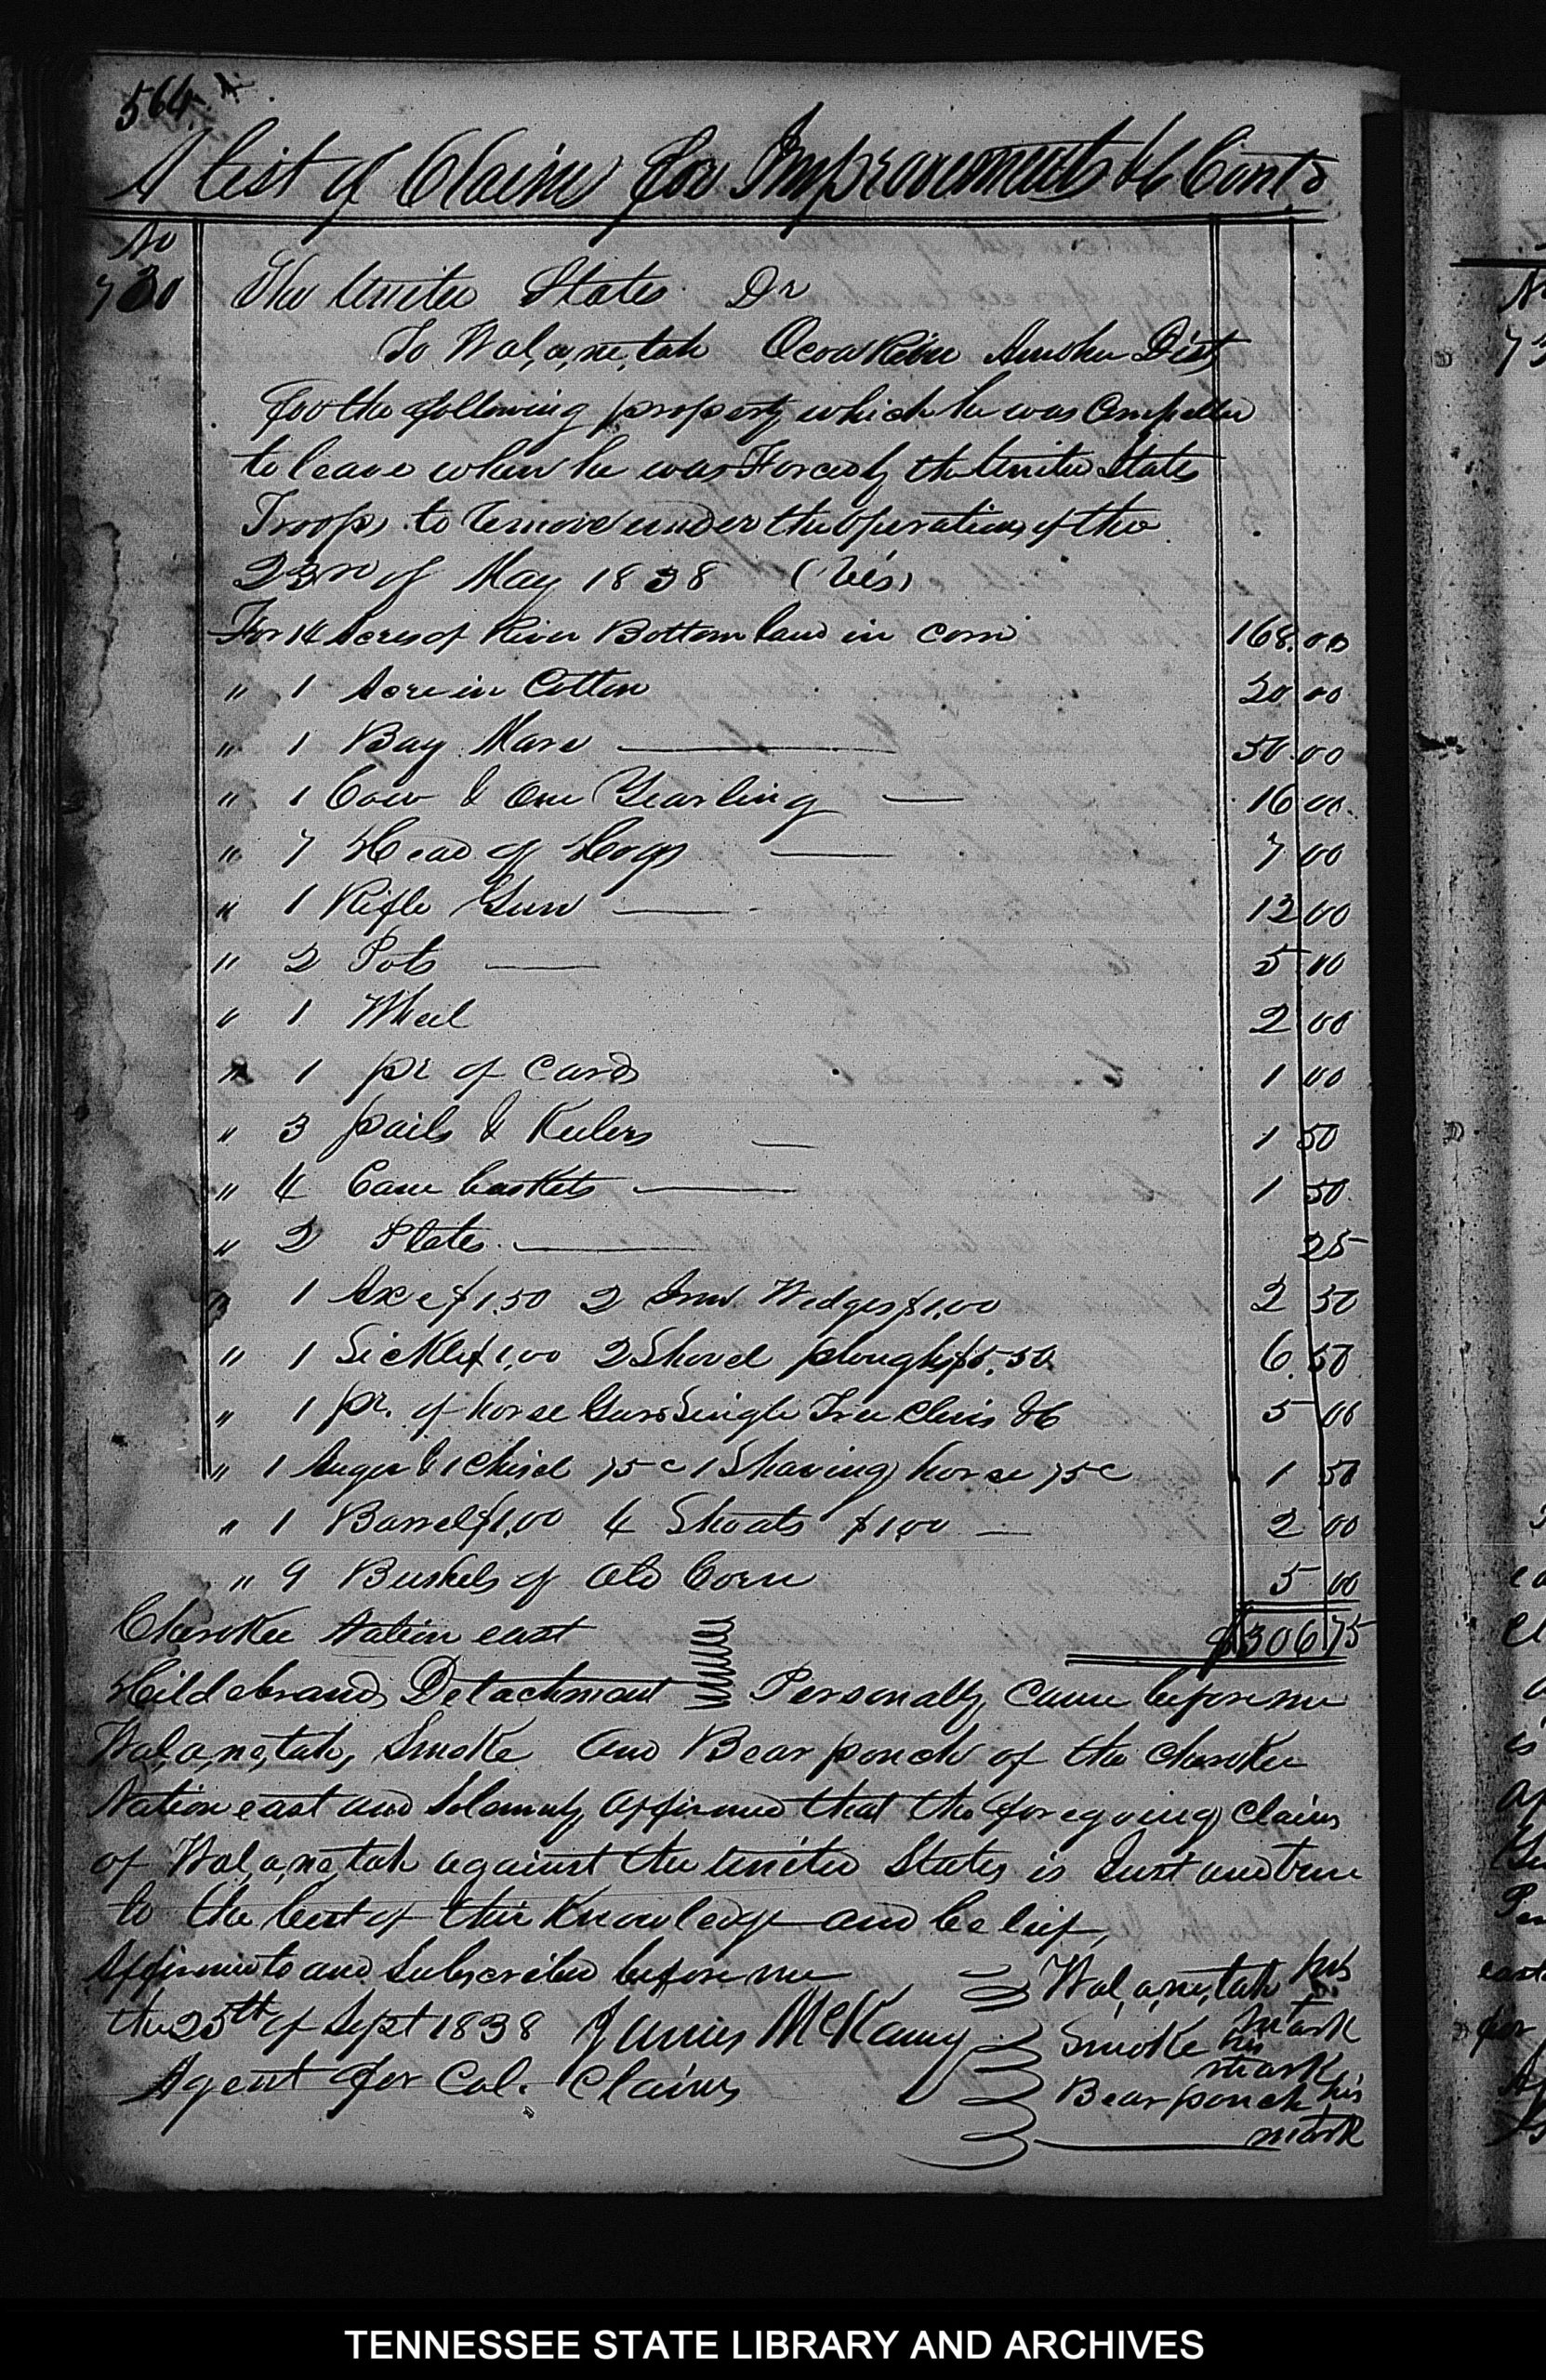 564
A list of Claims for Improvements &c Contd
No
730 The United States Dr
To Wal,a,ne,tah Ocoa River Amohee Dist
For the following property which he was Compelled
to leave when he was Forced by the United States
Troops to remove under the operations of the
23rd of May 1838 (Viz)
For 14 Acres of River Bottom land in corn 168.00
" 1 Acre in Cotton 20 00
" 1 Bay Mare 50.00
" 1 Cow & One Yearling 16 00
" 7 Head of Hogs 7 00
" 1 Rifle Gun 12 00
" 2 Pots 5 00
" 1 Wheel 2 00
" 1 pr of Cards 1 00
" 3 pails & Keelers 1 50
" 4 Cane baskets 1 50
" 2 Plates 25
" 1 Axe $1.50 2 Iron Wedges $1.00 2 50
" 1 Sickle $1,00 2 Shovel ploughs $5.50 6.50
" 1 pr. of horse Gears Single Tree Clevis &c 5 00
" 1 Auger & 1 Chisel 75c 1 Shaving horse 75c 1 50
" 1 Barrel $1,00 4 Shoats $1,00 2 00
" 9 Bushels of Old Corn 5 00
Cherokee Nation east $306 75
Hildebrands Detachment Personally came before me
Wal,a,ne,tah, Smoke and Bear ponch of the Cherokee
Nation east and Solemnly affirmed that the foregoing Claim
of Wal,a,ne,tah against the United States is Just and true
to the best of their Knowledge and belief,
Affirmed to and Subscribed before me Wal,a,ne,tah his
the 25th of Sept 1838 James McKamy mark
Smoke his
mark
Agent for Col. Claims Bear ponch his
mark
TENNESSEE STATE LIBRARY AND ARCHIVES